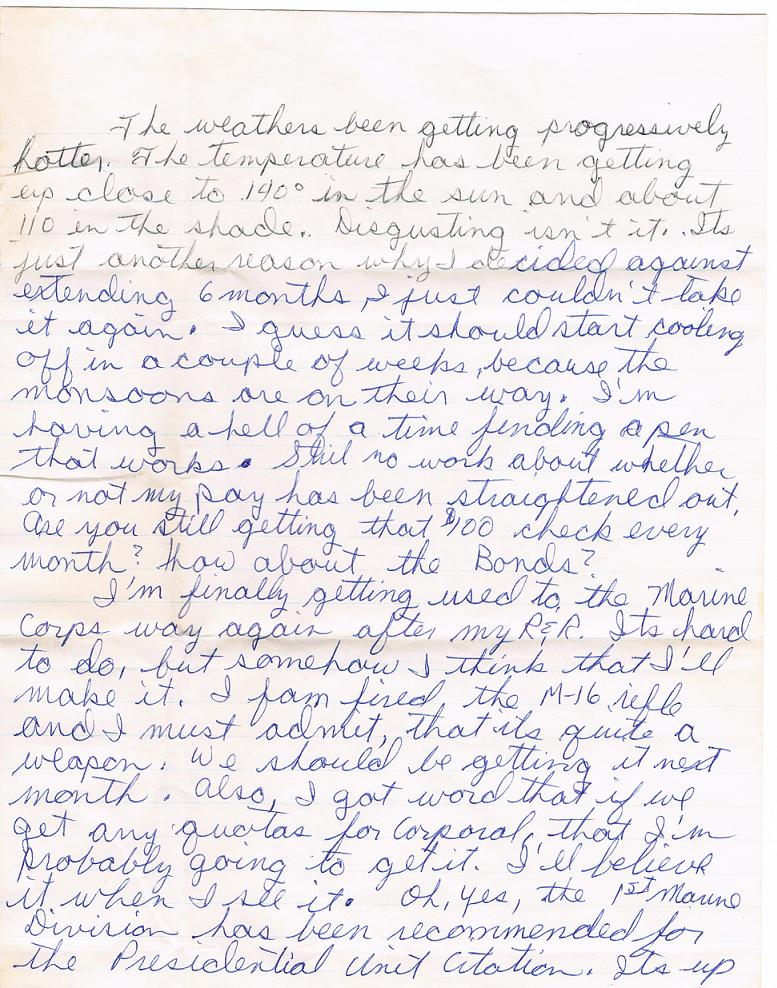 The weathers been getting progressively
hotter. The temperature has been getting
up close to 140° in the sun and about
110 in the shade. Disgusting isn't it. Its
just another reason why I decided against
extending 6 months, I just couldn't take
it again. I guess it should start cooling
off in a couple of weeks, because the
monsoons are on their way. I'm
having a hell of a time finding a pen
that works. Still no work about whether
or not my pay has been straightened out.
Are you still getting that $100 check every
month? How about the Bonds?
I'm finally getting used to the Marine
Corps way again after my R&R. Its hard
to do, but somehow I think that I'll
make it. I fam fired the M-16 rifle
and I must admit, that its quite a
weapon. We should be getting it next
month. Also, I got word that if we
get any quotas for Corporal, that I'm
probably going to get it. I'll believe
it when I see it. Oh, yes, the 1st Marine
Division has been recommended for
the Presidential Unit Citation. Its up